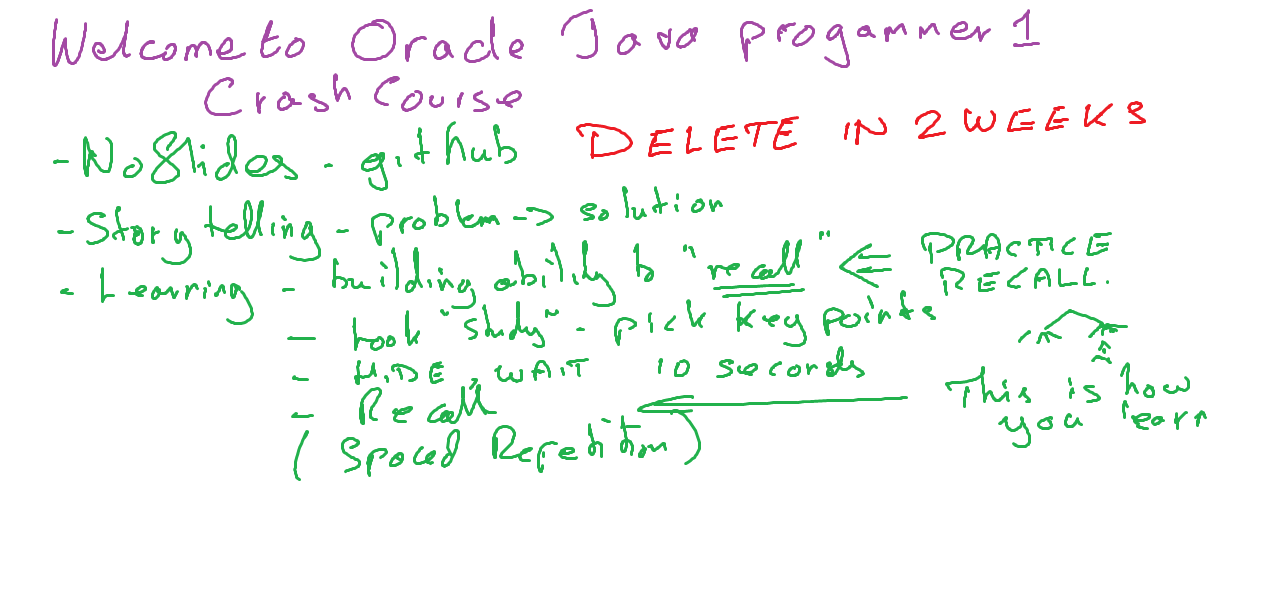 Welcome to Oracle Java progammer 1
Crash Course
DELETE IN 2 WEEKS
- No Slides - github
- Story telling - problem -> solution
- Learning - building ability to "recall" <= PRACTICE RECALL.
- took "study" - pick key points
- HIDE, WAIT 10 seconds
- Recall
(Spaced Repetition)
This is how
you learn